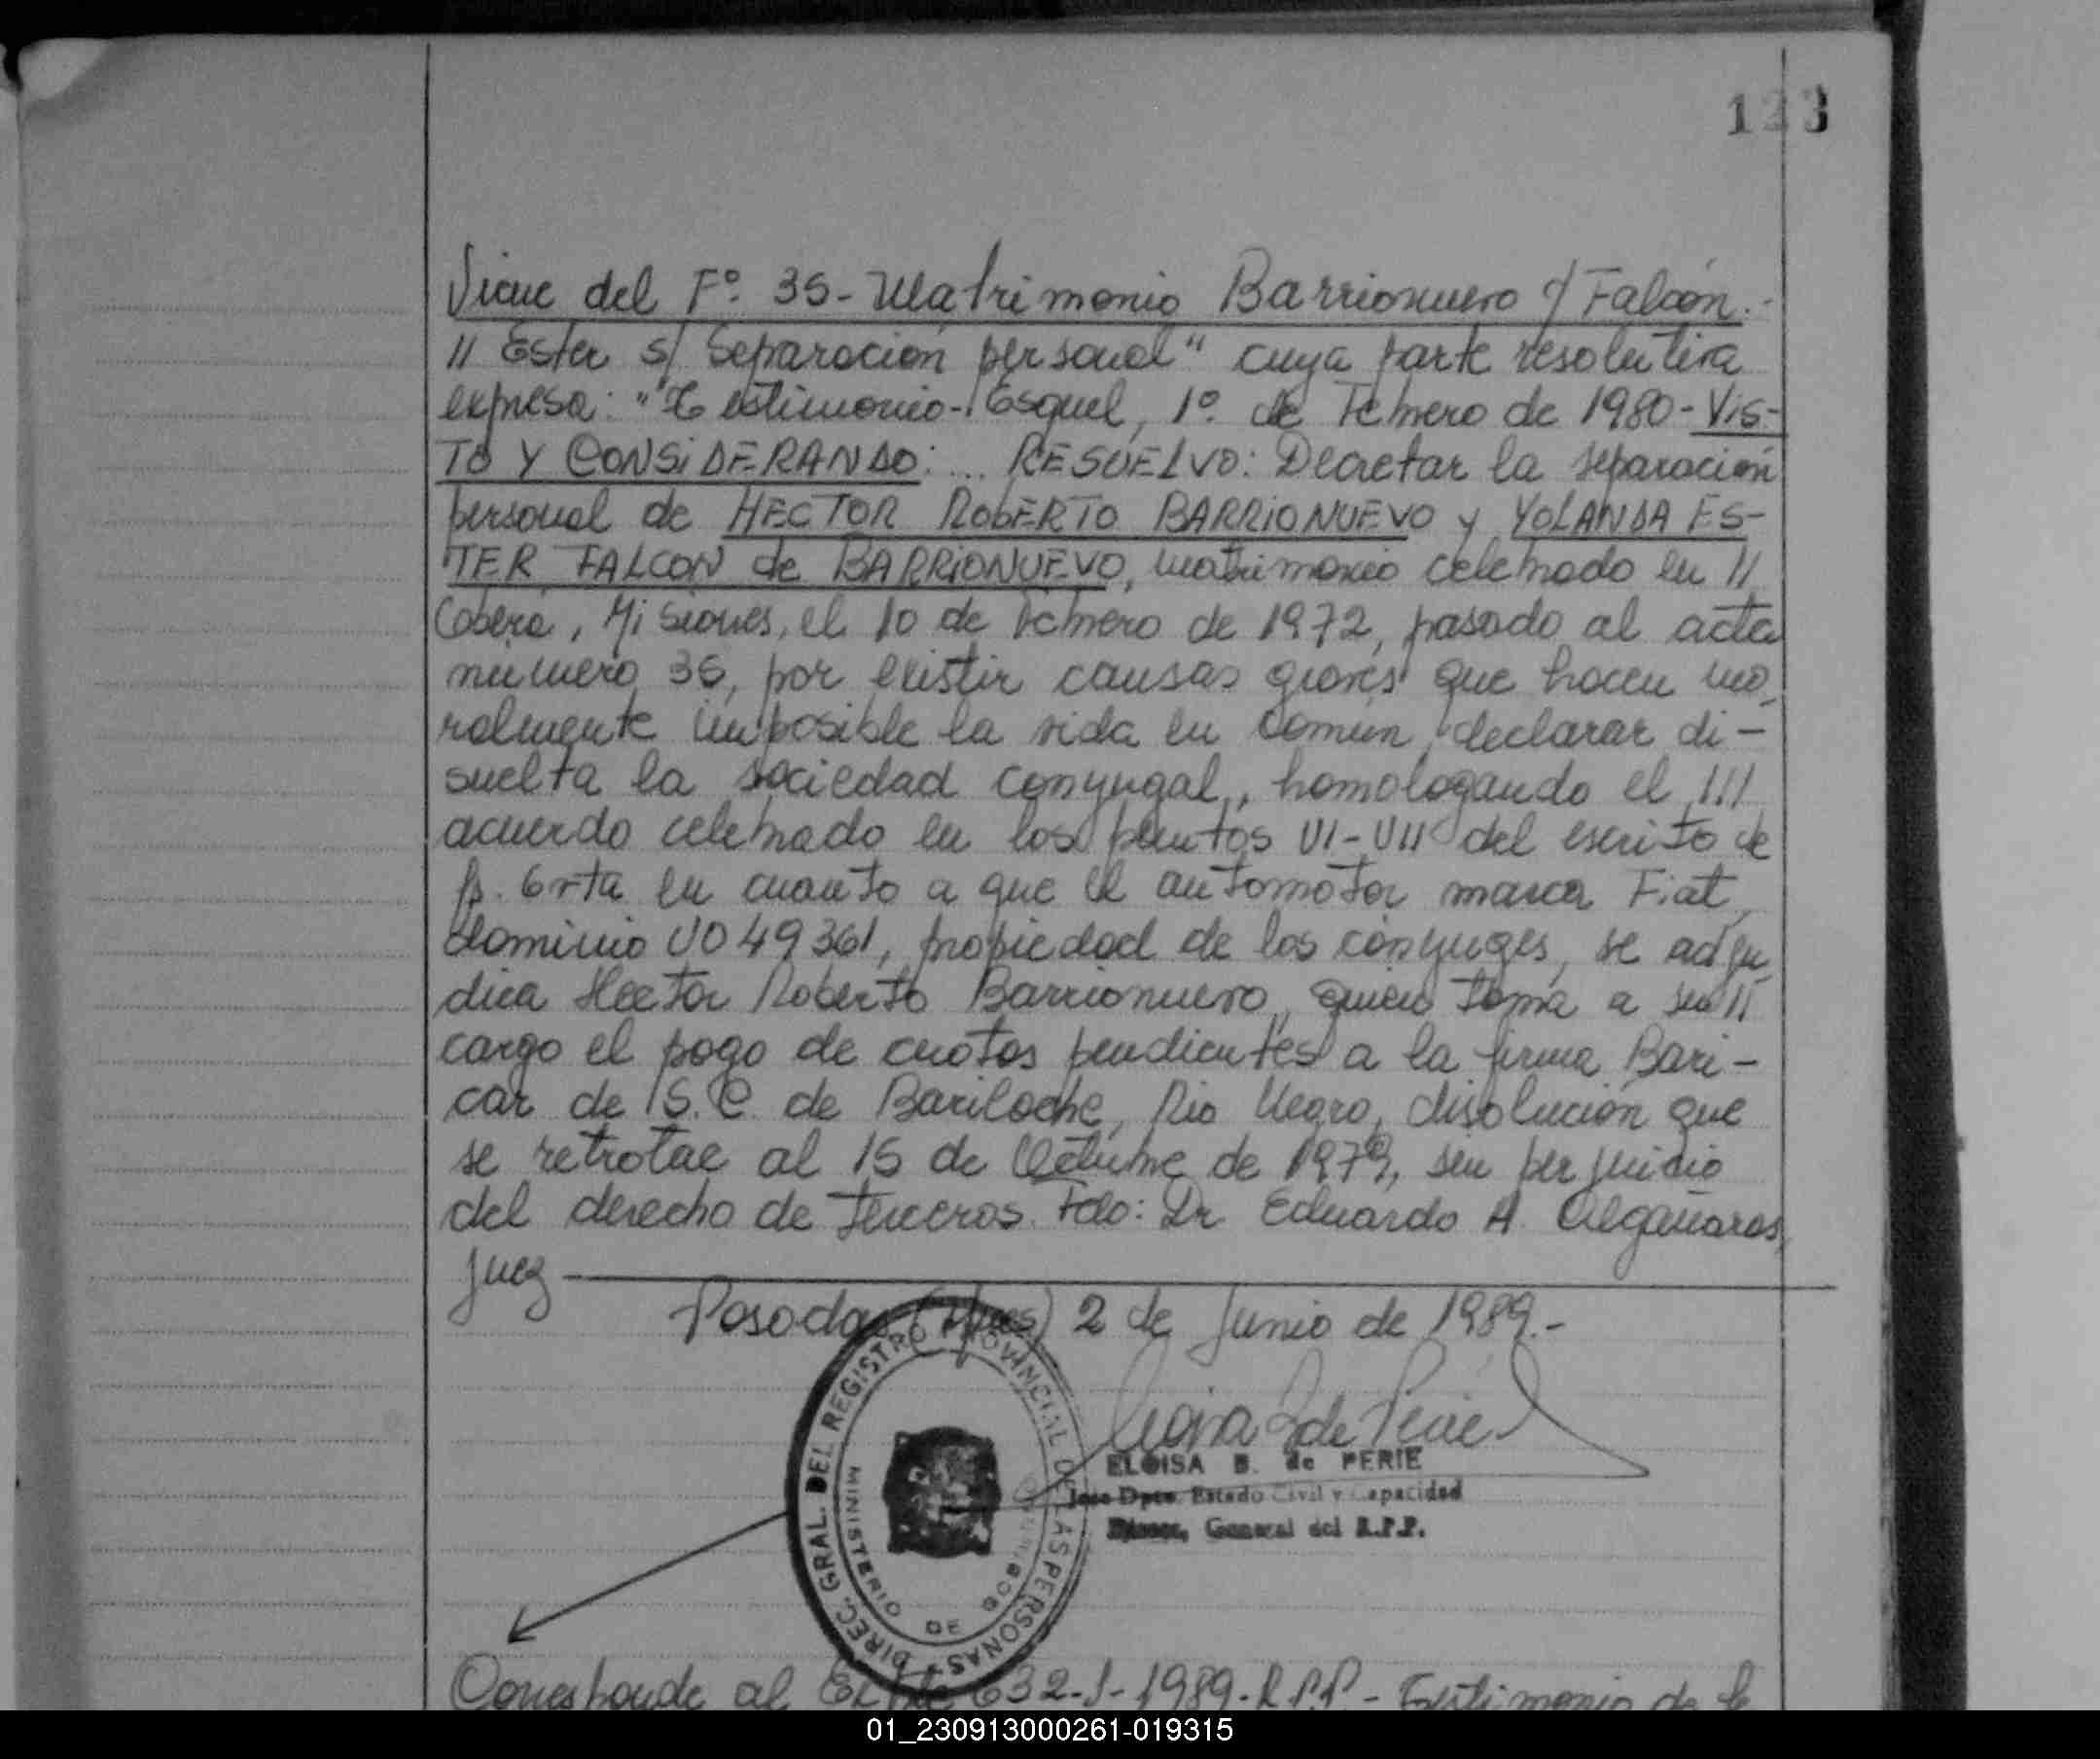 123
Viene del Fº. 35- Matrimonio Barrionuevo c/ Falcón.-
// Ester s/ Separación personal" cuya parte resolutiva
expresa: "Testimonio-. Esquel, 1º. de Febrero de 1980- VIS-
TO Y CONSIDERANDO: ... RESUELVO: Decretar la separación
personal de HECTOR ROBERTO BARRIONUEVO y YOLANDA ES-
TER FALCON de BARRIONUEVO, matrimonio celebrado en //
Oberá, Misiones, el 10 de Febrero de 1972, pasado al acta
número 35, por existir causas graves que hacen mo
ralmente imposible la vida en común, declarar di-
suelta la sociedad conyugal, homologando el ///
acuerdo celebrado en los puntos VI-VII del escrito de
fs. 6 vta en cuanto a que el automotor marca Fiat,
dominio U049361, propiedad de los cónyuges, se adju
dica Hector Roberto Barrionuevo, quien toma a su //
cargo el pago de cuotas pendientes a la firma Bari-
car de S.C. de Bariloche, Rio Negro, disolución que
se retrotae al 15 de Octubre de 1979, sin perjuicio
del derecho de terceros. Fdo: Dr. Eduardo A. Algañaras,
Juez
Posadas (Mnes) 2 de Junio de 1989.-
DIREC. GRAL. DEL REGISTRO PROVINCIAL DE LAS PERSONAS
MINISTERIO DE GOBIERNO
ELOISA B. de PERIE
Jefe Dpto. Estado Civil y Capacidad
General del R.P.P.
Corresponde al Expte 632-S-1989-R.P.P- Testimonio de la
01_230913000261-019315